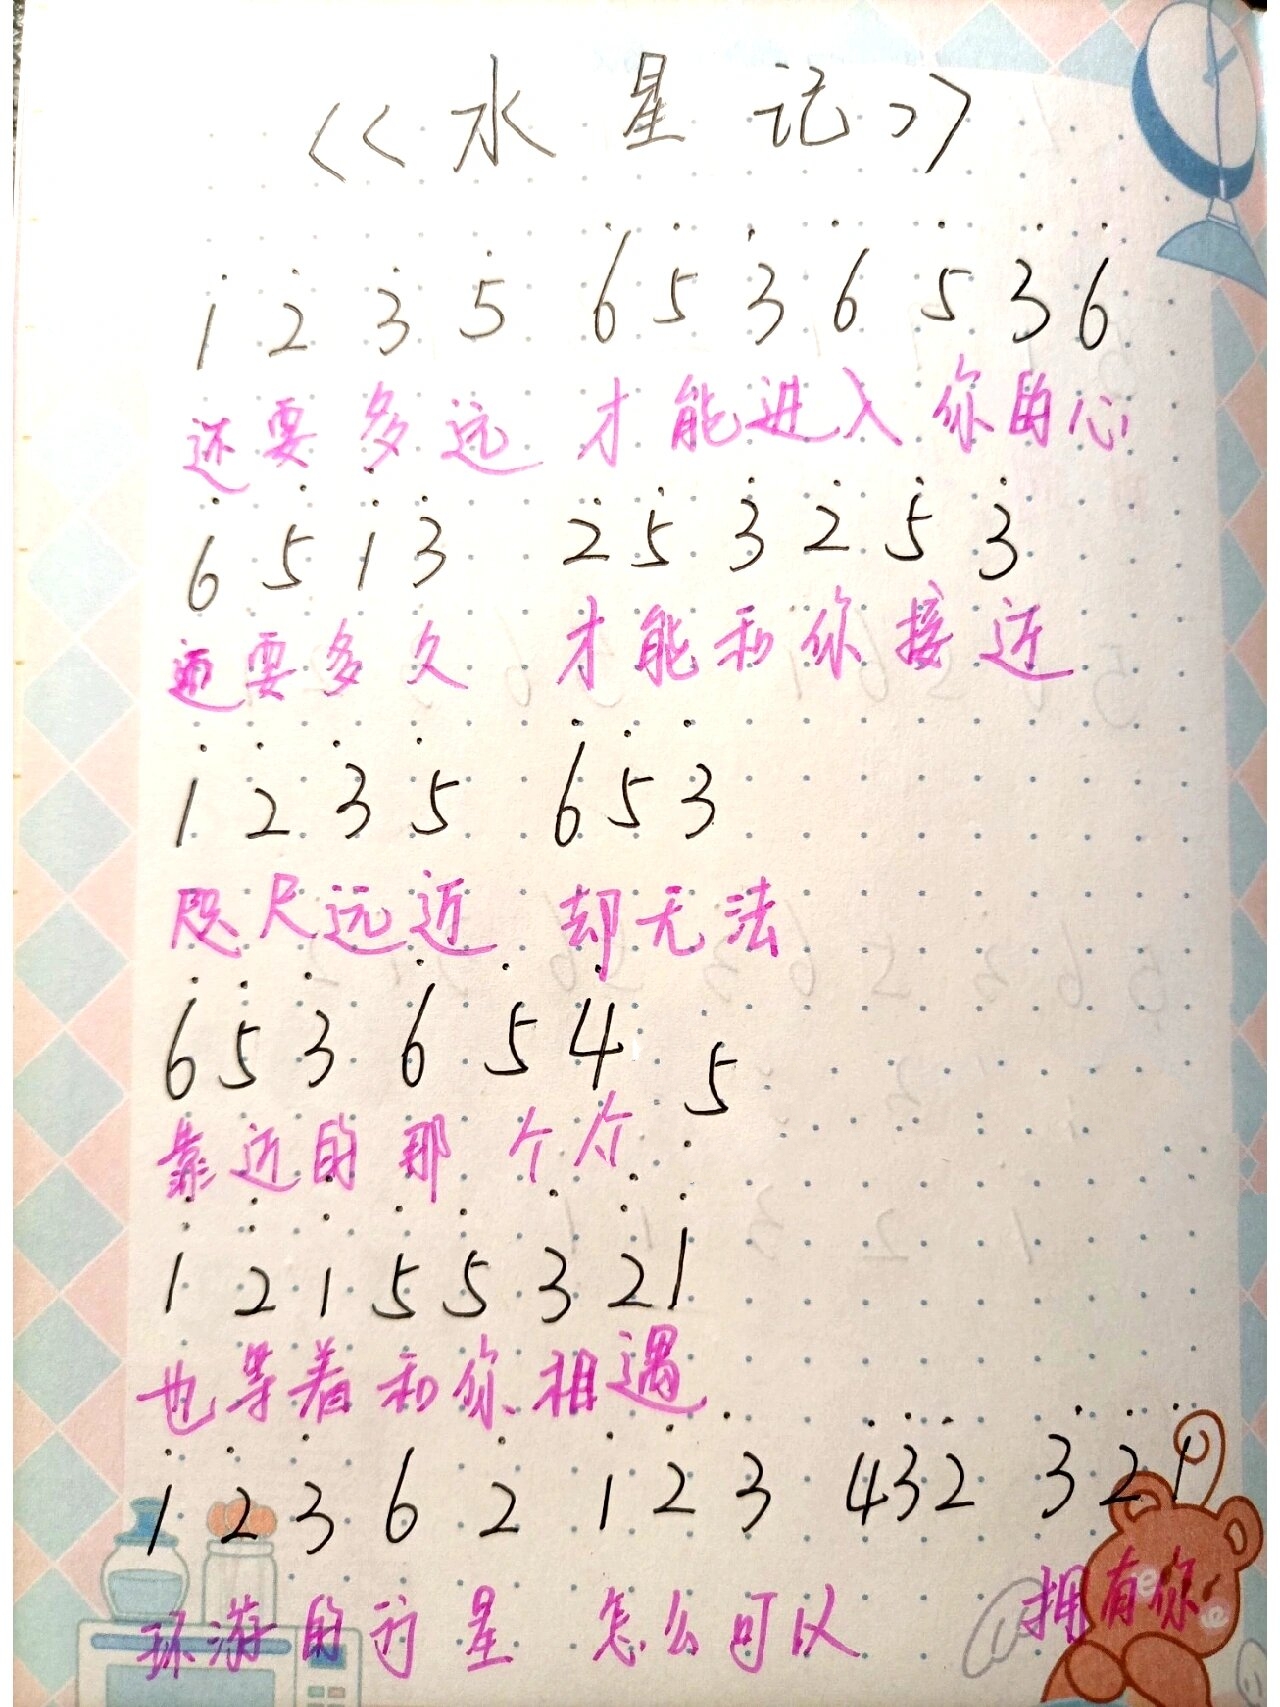 <<水星记>>
1̇ 2̇ 3̇ 5̇ 6̇ 5̇ 3̇ 6̇ 5̇ 3̇ 6̇
还要多远 才能进入你的心
6̇ 5̇ 1̇ 3̇ 2̇ 5̇ 3̇ 2̇ 5̇ 3̇
还要多久 才能和你接近
1̇ 2̇ 3̇ 5̇ 6̇ 5̇ 3̇
咫尺远近 却无法
6̇ 5̇ 3̇ 6̇ 5̇ 4̇ 5
靠近的那个个
1̇ 2̇ 1̇ 5̇ 5̇ 3̇ 2̇ 1̇
也等着和你相遇
1̇ 2̇ 3̇ 6 2̇ 1̇ 2̇ 3̇ 4̇ 3̇ 2̇ 3̇ 2̇ 1̇
环游的行星 怎么可以 拥有你